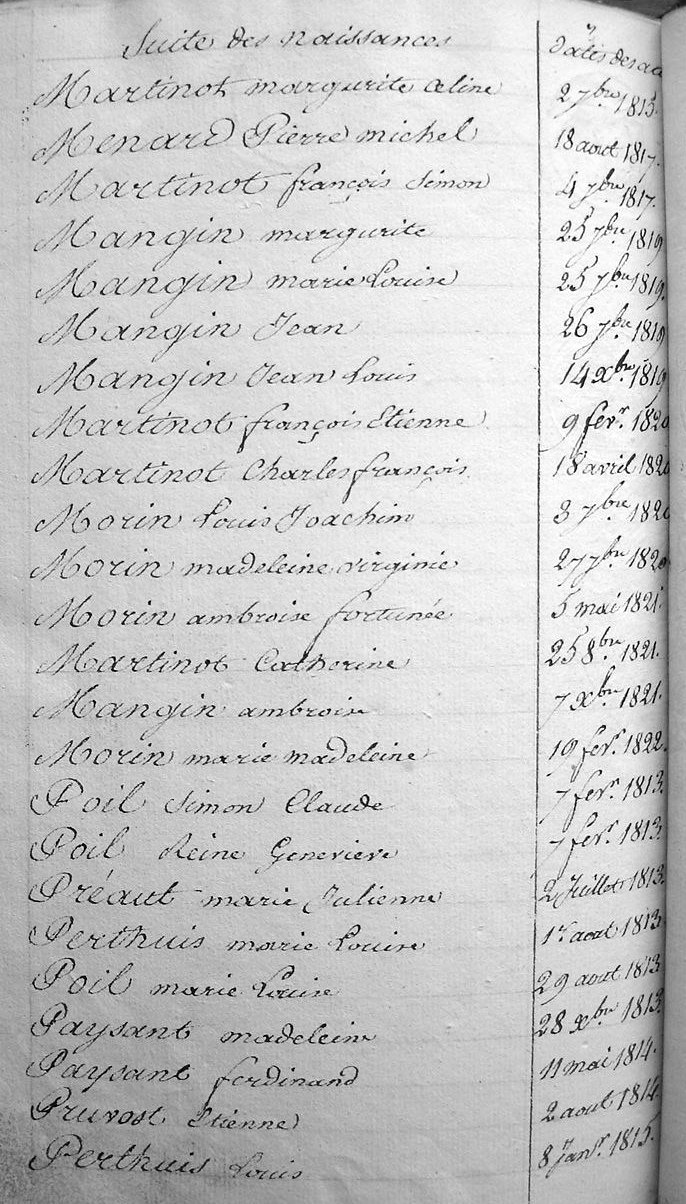 Suite des naissances Dates des ac
Martinot margurite Celine 2 7bre 1815.
Menard Pierre michel 18 aout 1817.
Martinot françois Simon 4 7bre 1817.
Mangin margurite 25 7bre 1819
Mangin marie Louise 25 7bre 1819.
Mangin Jean 26 7bre 1819
Mangin Jean Louis 14 xbre 1819
Martinot françois Etienne 9 fevr. 1820
Martinot Charles françois 18 avril 1820
Morin Louis Joachim 3 7bre 1820
Morin madeleine virginie 27 7bre 1820
Morin ambroise fortunée 5 mai 1821.
Martinot Catherine 25 8bre 1821.
Mangin ambroise 7 xbre 1821.
Morin marie madeleine 19 fevr. 1822.
Poil Simon Claude 7 fevr. 1813.
Poil Reine Genevieve 7 fevr. 1813.
Préaut marie Julienne 2 Juillet 1813.
Perthuis marie Louise 1er aout 1813
Poil marie Louise 29 aout 1813
Paysant madeleine 28 xbre 1813.
Paysant ferdinand 11 mai 1814.
Pruvost Etienne 2 aout 1814.
Perthuis Louis 8 janvr. 1815.